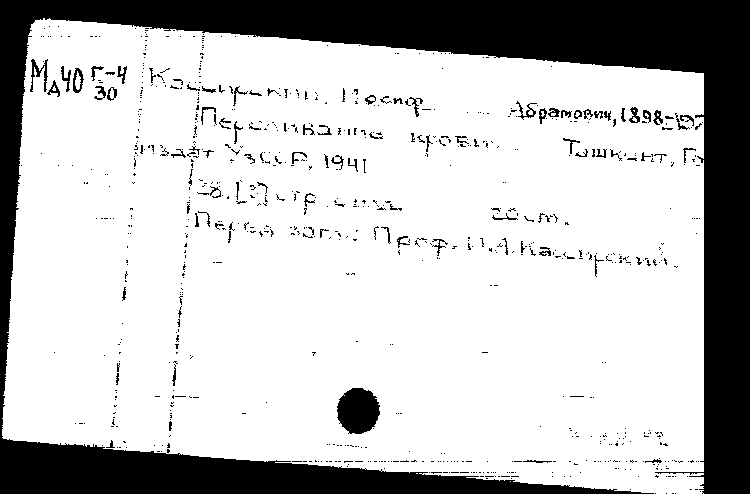 Мд40 Г-4
30
Кассирский, Иосиф Абрамович, 1898-197
Переливание крови. Ташкент, Го
издат УзССР, 1941
28.[2] стр. с илл. 20 cm.
Перед загл.: Проф. И.А.Кассирский.